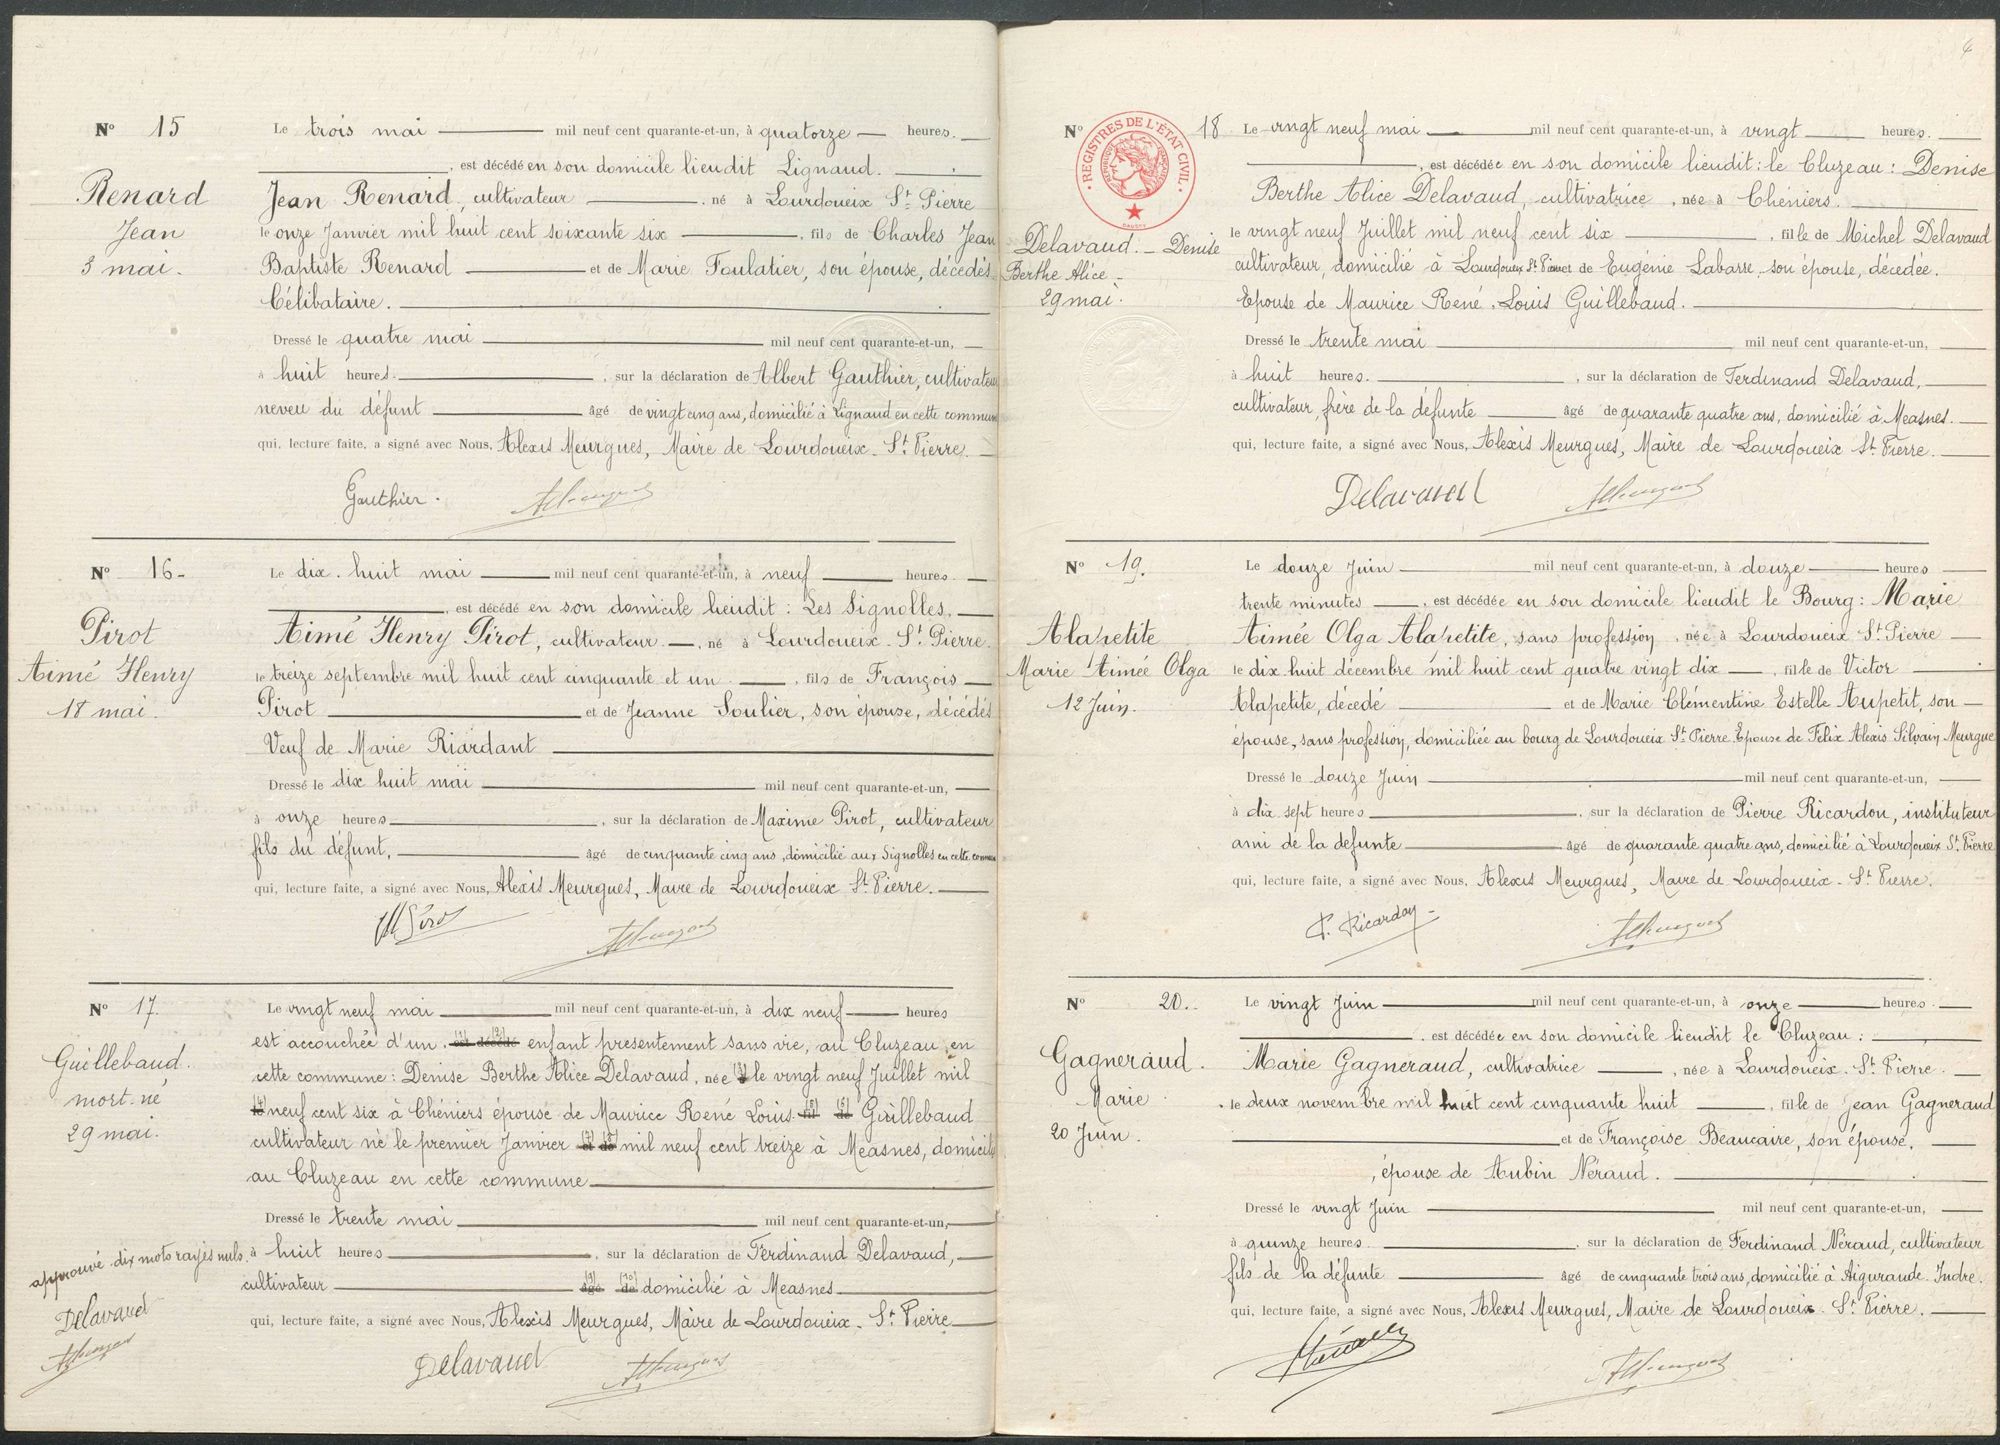 N° 15
Renard
Jean
3 mai.
Le trois mai mil neuf cent quarante-et-un, à quatorze heures.
, est décédé en son domicile lieudit Lignaud.
Jean Renard, cultivateur, né à Lourdoueix St Pierre
le onze Janvier mil huit cent soixante six, fils de Charles Jean
Baptiste Renard et de Marie Foulatier, son épouse, décédés
Célibataire.
Dressé le quatre mai mil neuf cent quarante-et-un,
à huit heures, sur la déclaration de Albert Gauthier, cultivateur
neveu du défunt âgé de vingt cinq ans, domicilié à Lignaud en cette commune
qui, lecture faite, a signé avec Nous, Alexis Meurgues, Maire de Lourdoueix-St Pierre.
Gauthier.
N° 16-
Pirot
Aimé Henry
18 mai.
Le dix-huit mai mil neuf cent quarante-et-un, à neuf heures.
, est décédé en son domicile lieudit : Les Signolles.
Aimé Henry Pirot, cultivateur, né à Lourdoueix-St Pierre.
le treize septembre mil huit cent cinquante et un, fils de François
Pirot et de Jeanne Soulier, son épouse, décédés
Veuf de Marie Riardant
Dressé le dix huit mai mil neuf cent quarante-et-un,
à onze heures, sur la déclaration de Maxime Pirot, cultivateur
fils du défunt, âgé de cinquante cinq ans, domicilié aux Signolles en cette commune
qui, lecture faite, a signé avec Nous, Alexis Meurgues, Maire de Lourdoueix St Pierre.
N° 17.
Guillebaud.
mort-né
29 mai.
Le vingt neuf mai mil neuf cent quarante-et-un, à dix neuf heures
est accouchée d'un (1) est (2) décédé enfant présentement sans vie, au Cluzeau, en
cette commune : Denise Berthe Alice Delavaud, née (3) le vingt neuf Juillet mil
(4) neuf cent six à Chéniers épouse de Maurice René Louis (5) fils (6) de Guillebaud
cultivateur né le premier Janvier (7) et (8) de mil neuf cent treize à Measnes, domicilié
au Cluzeau en cette commune
Dressé le trente mai mil neuf cent quarante-et-un,
à huit heures, sur la déclaration de Ferdinand Delavaud,
cultivateur (9) âgé (10) de domicilié à Measnes
qui, lecture faite, a signé avec Nous, Alexis Meurgues, Maire de Lourdoueix-St Pierre
approuvé dix mots rayés nuls.
Delavaud
Delavaud
4
N° 18
REGISTRES DE L'ÉTAT CIVIL
Delavaud.-Denise
Berthe Alice-
29 mai.
Le vingt neuf mai mil neuf cent quarante-et-un, à vingt heures.
, est décédée en son domicile lieudit : le Cluzeau : Denise
Berthe Alice Delavaud, cultivatrice, née à Chéniers.
le vingt neuf Juillet mil neuf cent six, fille de Michel Delavaud
cultivateur, domicilié à Lourdoueix St Pierre et de Eugénie Labarre, son épouse, décédée.
Epouse de Maurice René-Louis Guillebaud.
Dressé le trente mai mil neuf cent quarante-et-un,
à huit heures, sur la déclaration de Ferdinand Delavaud,
cultivateur, frère de la défunte âgé de quarante quatre ans, domicilié à Measnes.
qui, lecture faite, a signé avec Nous, Alexis Meurgues, Maire de Lourdoueix St Pierre.
Delavaud
N° 19.
Alapetite
Marie Aimée Olga
12 Juin.
Le douze Juin mil neuf cent quarante-et-un, à douze heures
trente minutes, est décédée en son domicile lieudit le Bourg : Marie
Aimée Olga Alapetite, sans profession, née à Lourdoueix St Pierre
le dix huit décembre mil huit cent quatre vingt dix, fille de Victor
Alapetite, décédé et de Marie Clémentine Estelle Aupetit, son
épouse, sans profession, domiciliée au bourg de Lourdoueix St Pierre. Epouse de Félix Alexis Silvain Meurgue
Dressé le douze Juin mil neuf cent quarante-et-un,
à dix sept heures, sur la déclaration de Pierre Ricardon, instituteur
ami de la défunte âgé de quarante quatre ans, domicilié à Lourdoueix St Pierre
qui, lecture faite, a signé avec Nous, Alexis Meurgues, Maire de Lourdoueix-St Pierre.
P. Ricardon
N° 20.
Gagneraud.
Marie
20 Juin.
Le vingt Juin mil neuf cent quarante-et-un, à onze heures.
, est décédée en son domicile lieudit le Cluzeau :
Marie Gagneraud, cultivatrice, née à Lourdoueix-St Pierre
le deux novembre mil huit cent cinquante huit, fille de Jean Gagneraud
et de Françoise Beaucaire, son épouse.
, épouse de Aubin Néraud.
Dressé le vingt Juin mil neuf cent quarante-et-un,
à quinze heures, sur la déclaration de Ferdinand Néraud, cultivateur
fils de la défunte âgé de cinquante trois ans, domicilié à Aigurande. Indre.
qui, lecture faite, a signé avec Nous, Alexis Meurgues, Maire de Lourdoueix-St Pierre.